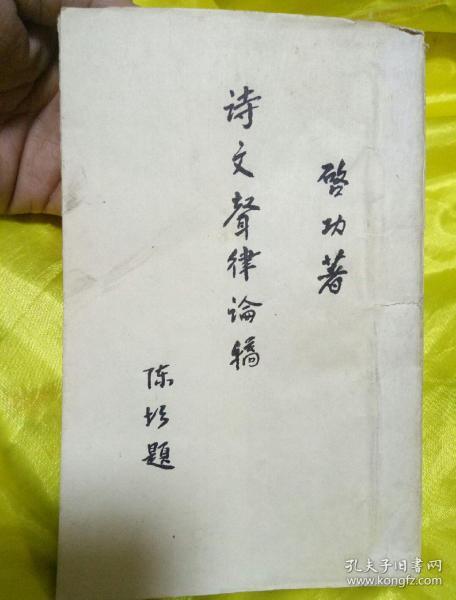 啓功著
诗文聲律論稿
陈垣題
孔夫子旧书网
www.kongfz.com